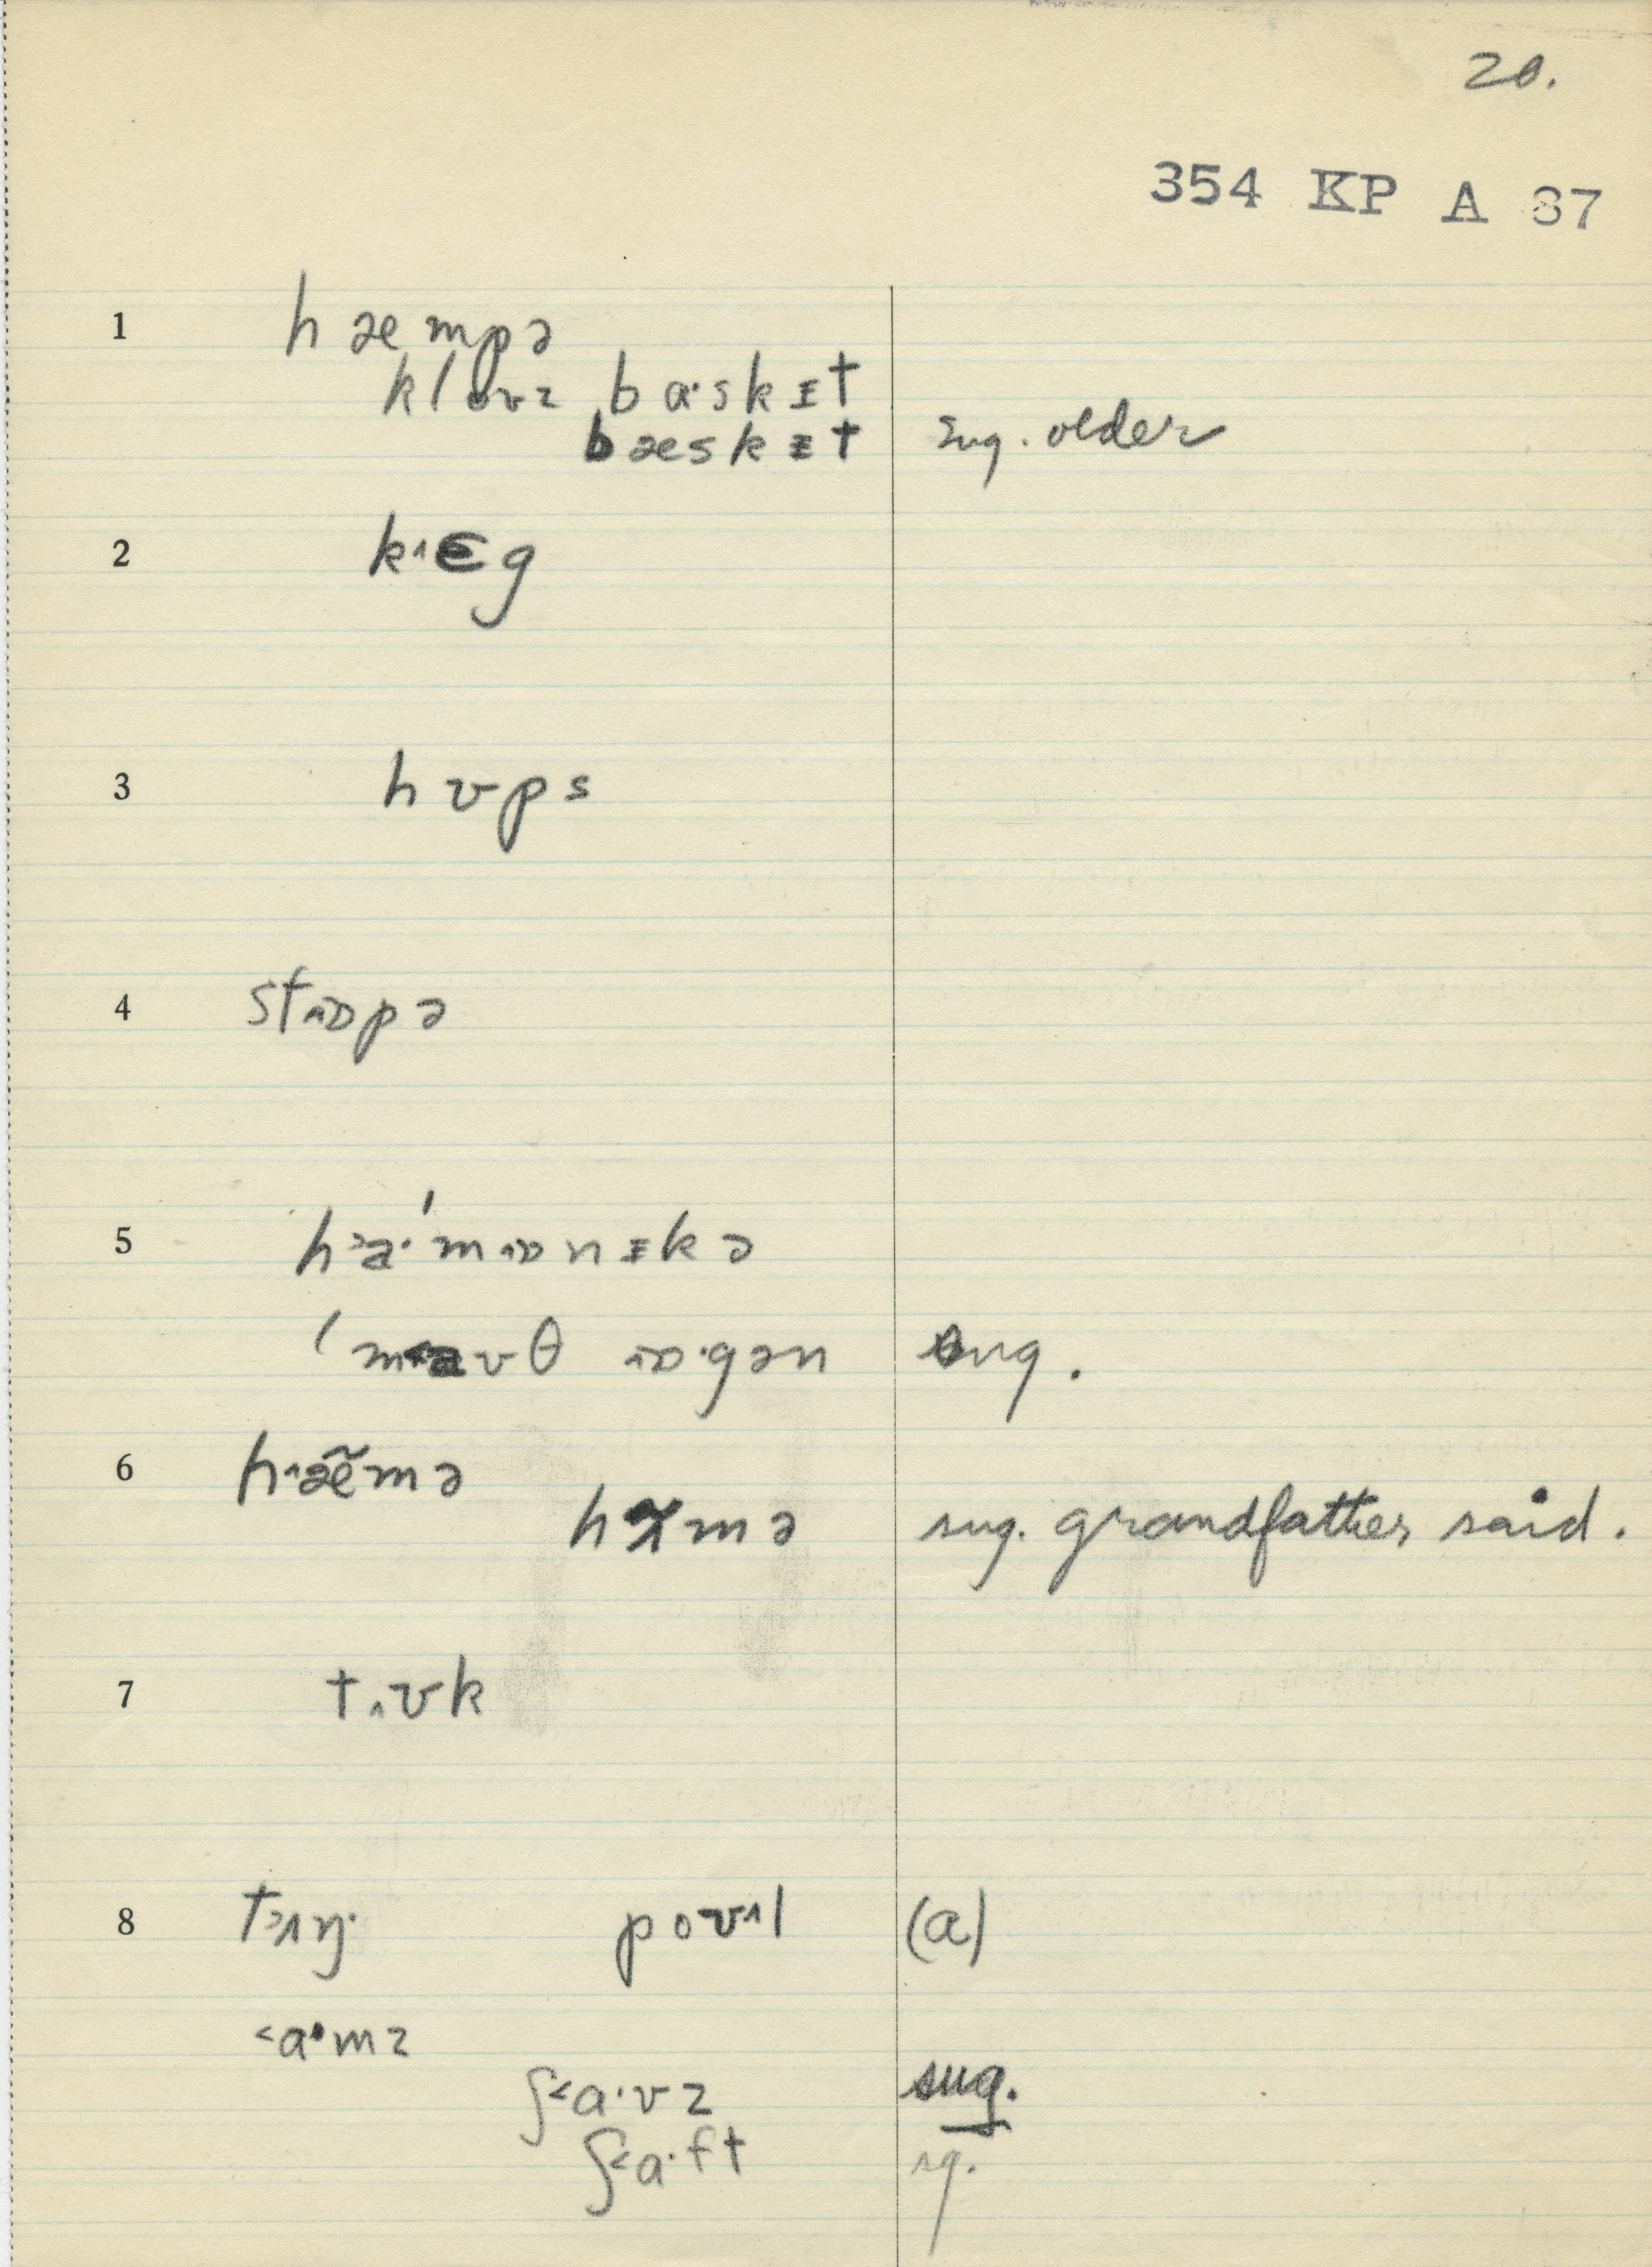 20.
354 KP A 87
1 hæmpə
klouz ba·skɪt
bæskɪt sug. older
2 k˄ɛg
3 hʊps
4 st˄ɒpə
5 h˃a·ˈm˄ɒnɪkə
ˈm˂aʊθ ˄ɒ·gən sug.
6 h˄æ̃mə
hæmə sug. grandfather said.
7 t˄ʊk
8 t˃ɪŋ· poʊ˄l (a)
˂a·mz
ʃ˂a·vz sug.
ʃ˂a·ft sg.